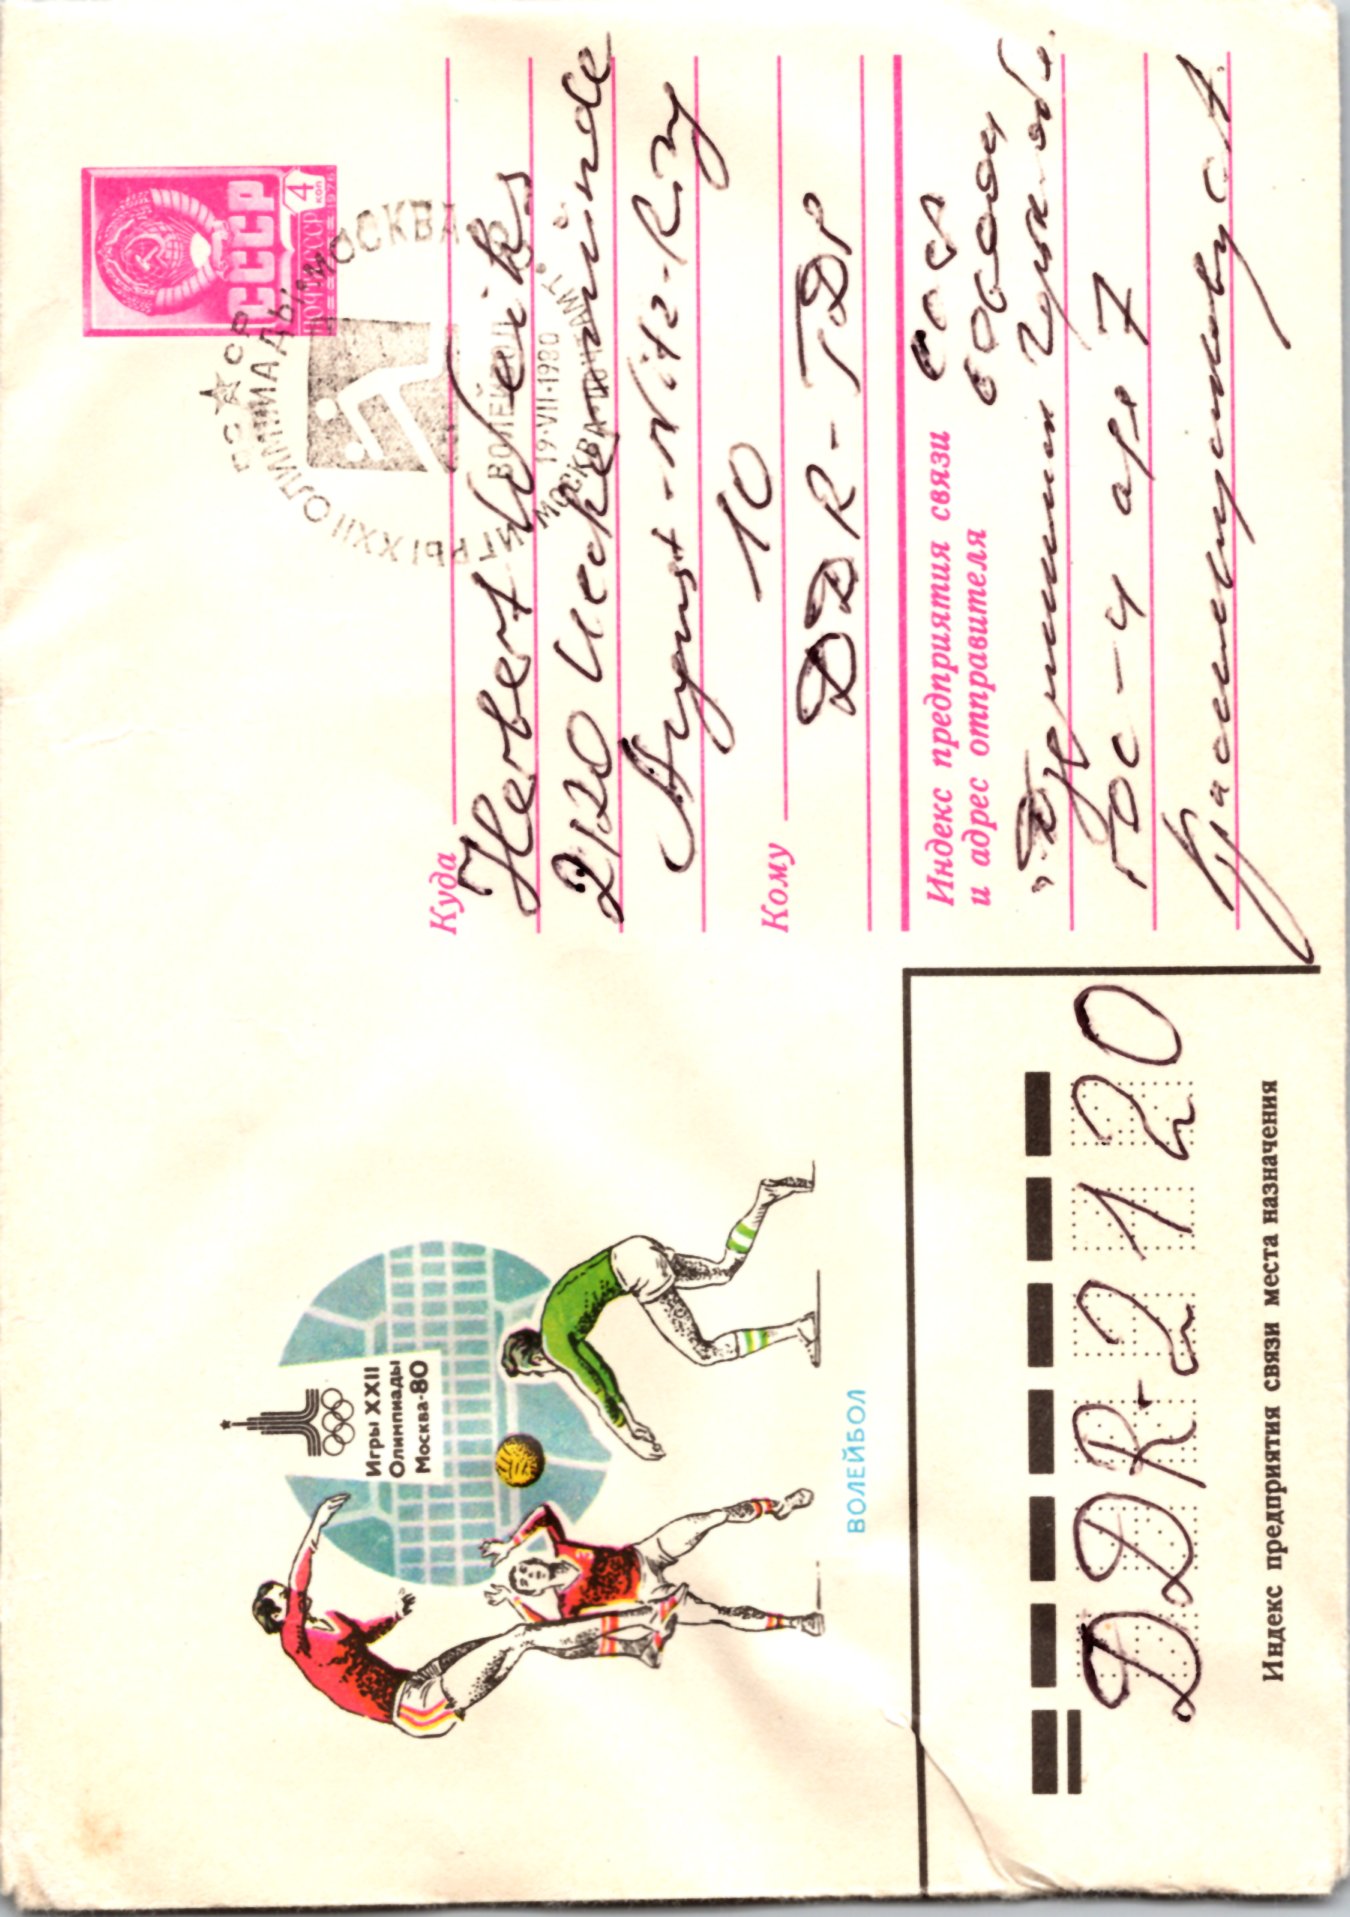 Игры XXII
Олимпиады
Москва-80
ВОЛЕЙБОЛ
СССР
ПОЧТА СССР
4
КОП
1976
СССР
ИГРЫ XXII ОЛИМПИАДЫ МОСКВА
ВОЛЕЙБОЛ
19·VII·1980
МОСКВА ПОЧТАМТ
Куда
Herbert Weiks
2120 Ueckermünde
August-Nitz-Ring
10
Кому
DDR-ГДР
Индекс предприятия связи
и адрес отправителя
ГОС-4 ap 7
DDR-2120
Индекс предприятия связи места назначения